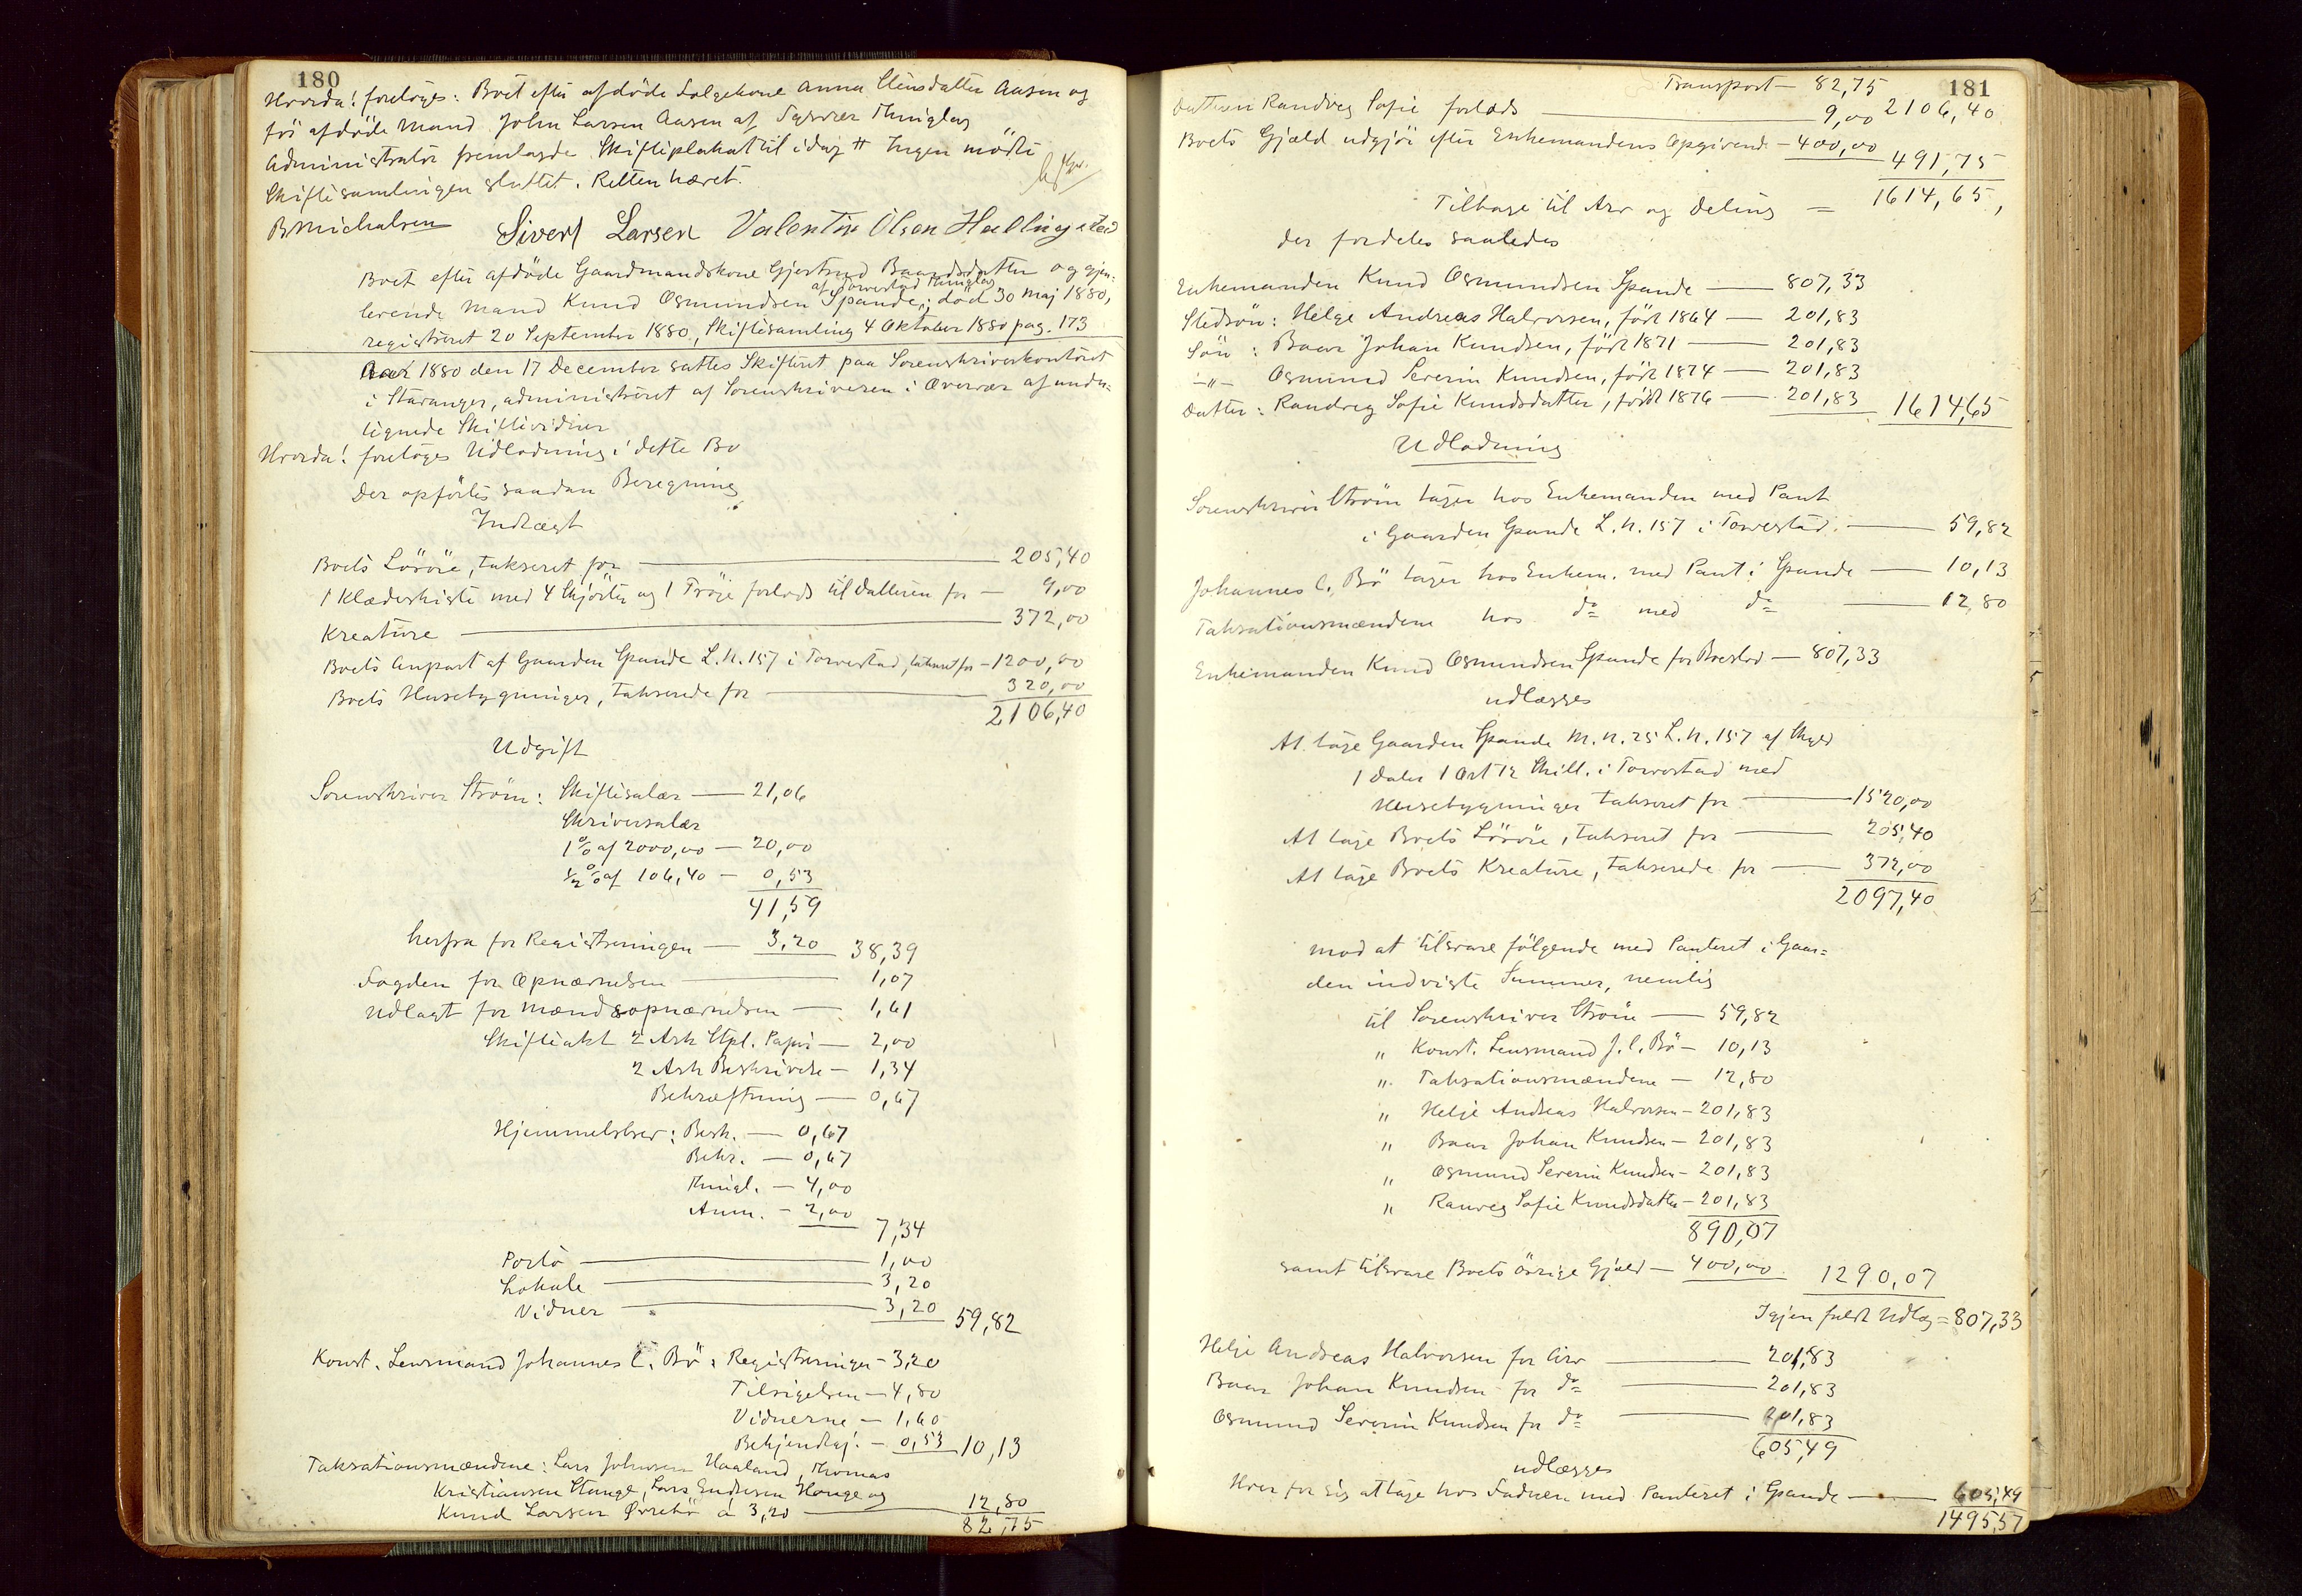 180
Hvorda! foretoges: Boet efter afdøde Følgekone Anna Stensdatter Aasen og
før afdøde Mand John Larsen Aasen af Tysvær Thinglag
Administrator fremlagde Skifteplakat til idag # Ingen mødte
Skiftesamlingen sluttet. Retten hævet.
BMichalsen Sivert Larsen Valentin Olsen Hallingstad
Boet efter afdøde Gaardmandskone Gjertrud Baardsdatter og gjen-
af Torvestad Thinglag
levende Mand Knud Osmundsen Spande, død 30 Maj 1880,
registreret 20 September 1880, Skiftesamling 4 Oktober 1880 pag. 173
Aar 1880 den 17 December sattes Skifteret paa Sorenskriverkontoret
i Stavanger, administreret af Sorenskriveren i Overvær af under-
tignede Skiftevidner
Hvorda! foretoges Udlodning i dette Bo
Der opførtes saadan Beregning
Indtægt
Boets Løsøre, takseret for 205,40
1 Klædeskiste med 4 Skjørter og 1 Trøje forlods til Datteren for — 9,00
Kreature 372,00
Boets Anpart af Gaarden Spande L.N. 157 i Torvestad, takseret for — 1200,00
Boets Husebygninger, takserede for 320,00
2106,40
Udgift
Sorenskriver Strøm: Skiftesalær — 21,06
Skriversalær
1 % af 2000,00 — 20,00
½ % af 106,40 — 0,53
41,59
herfra for Registreringen — 3,20 38,39
Fogden for Opnævnelsen 1,07
Udlagt for Mændsopnævnelsen — 1,61
Skifteakt 2 Ark Stpl. Papir — 2,00
2 Ark Beskrivelse — 1,34
Bekræftning — 0,67
Hjemmelsbrev: Besk. — 0,67
Bekr. — 0,67
Thingl. — 4,00
Anm. — 2,00
7,34
Porto 1,00
Lokale 3,20
Vidner 3,20 59,82
Konst. Lensmand Johannes C. Bø: Registreringen — 3,20
Tilsigelsen — 4,80
Vidnerne — 1,60
Bekjendtgj. — 0,53 10,13
Taksationsmændene: Lars Johnsen Haaland, Thomas
Kristiansen Stange, Lars Endresen Hauge og
Knud Larsen Ørrebø á 3,20 12,80
82,75
181
Transport — 82,75
Datteren Randveg Sofie forlods 9,00 2106,40
Boets Gjæld udgjør efter Enkemandens Opgivende — 400,00
491,75
Tilbage til Arv og Deling = 1614,65,
der fordeles saaledes
Enkemanden Knud Osmundsen Spande — 807,33
Stedsøn: Helge Andreas Halvorsen, født 1864 — 201,83
Søn: Baar Johan Knudsen, født 1871 — 201,83
—"— Osmund Severin Knudsen, født 1874 — 201,83
Datter: Randveg Sofie Knudsdatter, født 1876 — 201,83 1614,65
Udlodning
Sorenskriver Strøm tager hos Enkemanden med Pant
i Gaarden Spande L.N. 157 i Torvestad. — 59,82
Johannes C. Bø tager hos Enkem. med Pant i Spande — 10,13
Taksationsmændene hos do med do — 12,80
Enkemanden Knud Osmundsen Spande for Boeslod — 807,33
udlægges
At tage Gaarden Spande M.N. 25 L.N. 157 af Skyld
1 Daler 1 Ort 12 Skill. i Torvestad med
Husebygninger takseret for 1520,00
At tage Boets Løsøre, takseret for — 205,40
At tage Boets Kreature, takserede for — 372,00
2097,40
mod at tilsvare følgende med Panteret i Gaar-
den indviste Summer, nemlig
til Sorenskriver Strøm — 59,82
" Konst. Lensmand J.C. Bø — 10,13
" Taksationsmændene — 12,80
" Helje Andreas Halvorsen — 201,83
" Baar Johan Knudsen — 201,83
" Osmund Severin Knudsen — 201,83
" Ranveg Sofie Knudsdatter — 201,83
890,07
samt tilsvare Boets øvrige Gjæld — 400,00 1290,07
Igjen fuldt Udlæg = 807,33
Helje Andreas Halvorsen for Arv — 201,83
Baar Johan Knudsen for do — 201,83
Osmund Severin Knudsen for do — 201,83
605,49
udlægges
Hver for sig at tage hos Faderen med Panteret i Spande — 605,49
1495,57